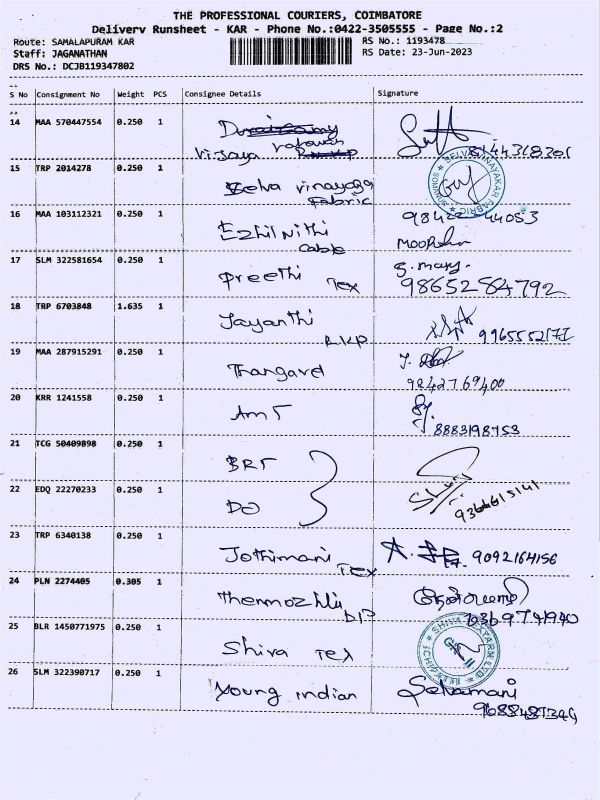 THE PROFESSIONAL COURIERS, COIMBATORE
Delivery Runsheet - KAR - Phone No.:0422-3505555 - Page No.:2
Route: SAMALAPURAM KAR RS No.: 1193478
Staff: JAGANATHAN RS Date: 23-Jun-2023
DRS No.: DCJB119347802
S No Consignment No Weight PCS Consignee Details Signature
14 MAA 570447554 0.250 1
Vijaya
15 TRP 2014278 0.250 1 Selva vinayaga
Fabric
SELVA VINAYAKAR FABRIC
16 MAA 103112321 0.250 1 Ezhil Nithi
Cable
17 SLM 322581654 0.250 1 Preethi Tex S. mary.
98652 84792
18 TRP 6703848 1.635 1 Jayanthi
RKP
19 MAA 287915291 0.250 1 Thangavel
98427 69400
20 KRR 1241558 0.250 1 Am 5
8883198753
21 TCG 50409898 0.250 1 BRT
22 EDQ 22270233 0.250 1 DO
23 TRP 6340138 0.250 1 Jothimani Tex 9092164156
24 PLN 2274405 0.305 1 Thermozhli
25 BLR 1450771975 0.250 1 Shiva Tex
26 SLM 322390717 0.250 1 Young indian Selvamani